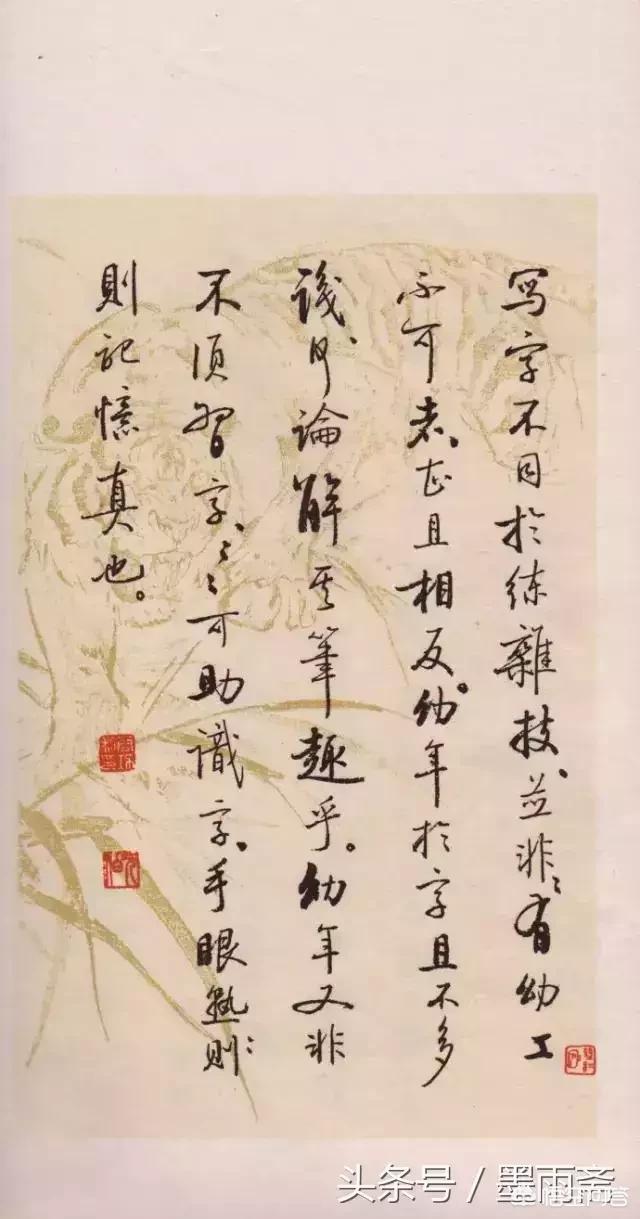 写字不同於练雜技、並非〻有幼工
不可者、甚且相反。幼年於字且不多
識、何論解其筆趣乎。幼年又非
不須習字、〻〻可助識字、手眼熟則
則記憶真也。
头条号 / 墨雨斋
悟空问答